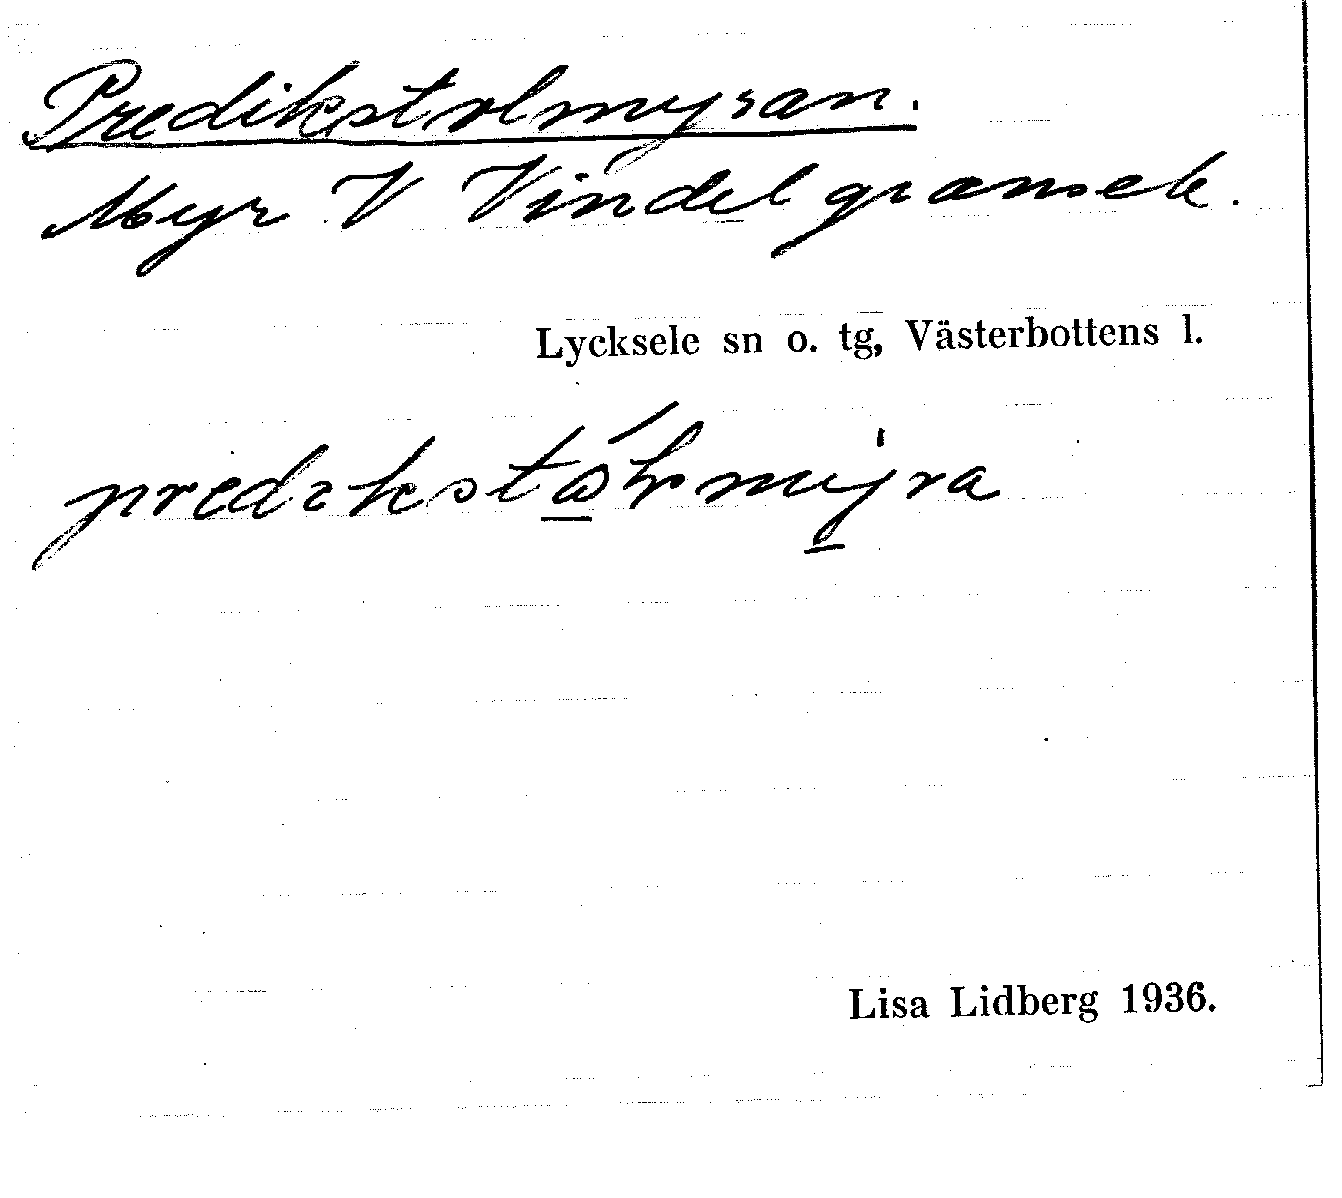 Predikstolmyran.
Myr V Vindelgransele.
Lycksele sn o. tg, Västerbottens l.
Lisa Lidberg 1936.